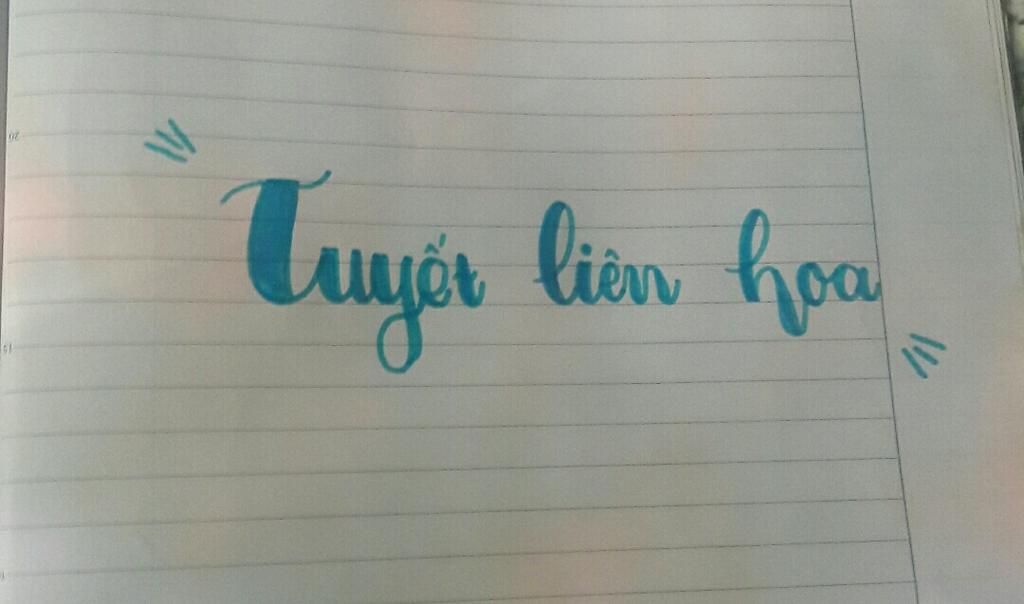 Tuyết liên hoa